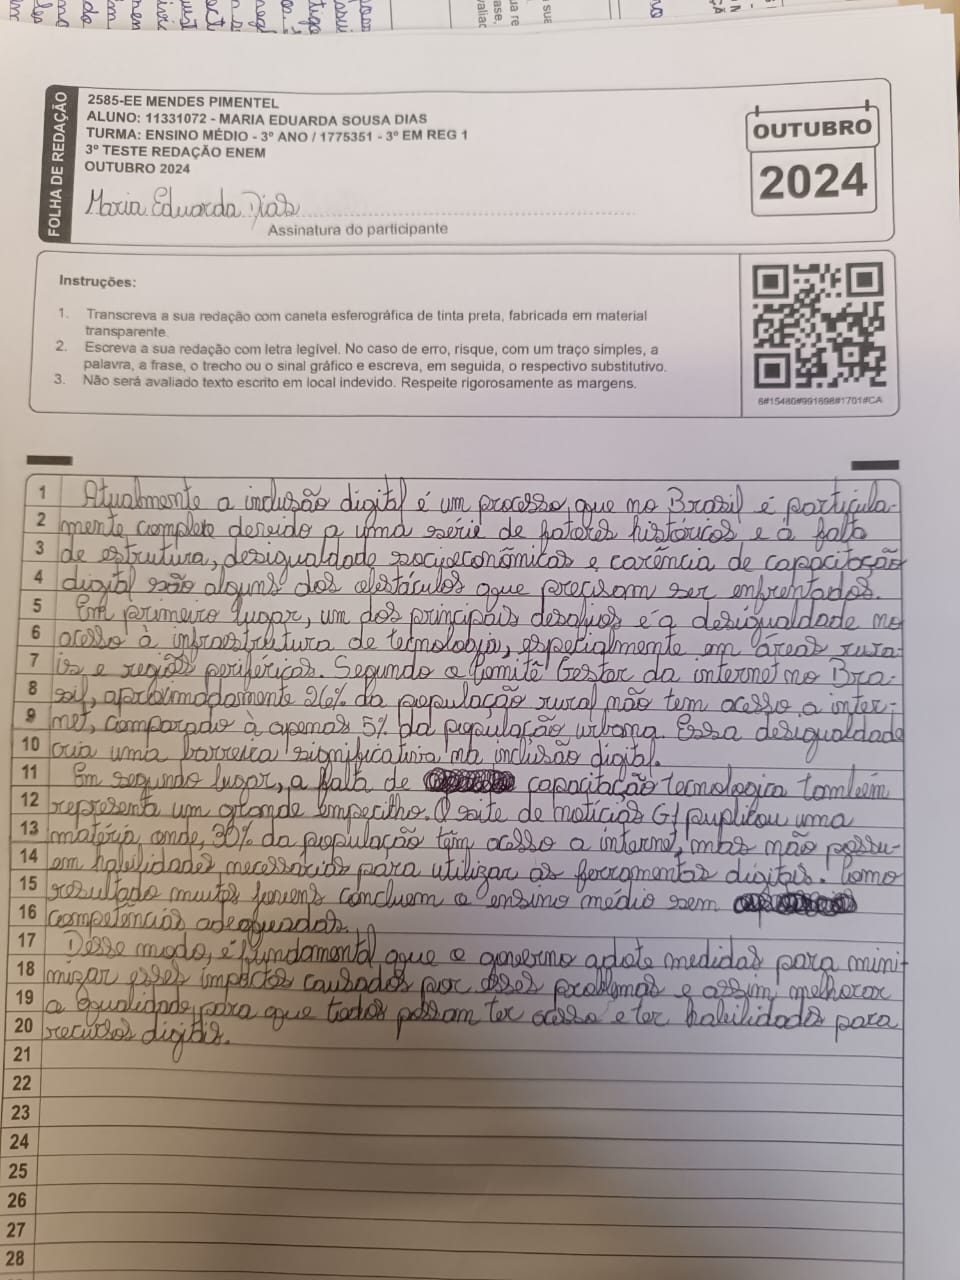 FOLHA DE REDAÇÃO
2585-EE MENDES PIMENTEL
ALUNO: 11331072 - MARIA EDUARDA SOUSA DIAS
TURMA: ENSINO MÉDIO - 3º ANO / 1775351 - 3º EM REG 1
3º TESTE REDAÇÃO ENEM
OUTUBRO 2024
Maria Eduarda Dias
Assinatura do participante
OUTUBRO
2024
Instruções:
1. Transcreva a sua redação com caneta esferográfica de tinta preta, fabricada em material
transparente.
2. Escreva a sua redação com letra legível. No caso de erro, risque, com um traço simples, a
palavra, a frase, o trecho ou o sinal gráfico e escreva, em seguida, o respectivo substitutivo.
3. Não será avaliado texto escrito em local indevido. Respeite rigorosamente as margens.
6#15480#991898#1701#CA
1 Atualmente a inclusão digital é um processo, que no Brasil é particula-
2 mente complete devido a uma série de fatores históricos e à falta
3 de estrutura, desigualdade socioeconômicas e carência de capacitação
4 digital são alguns dos obstáculos que precisam ser enfrentados.
5 Em primeiro lugar, um dos principais desafios é a desigualdade no
6 acesso à infraestrutura de tecnologia, especialmente em áreas rura-
7 is e regiões periféricas. Segundo o Comitê Gestor da internet no Bra-
8 sil, aproximadamente 26% da população rural não tem acesso a inter-
9 net, comparado à apenas 5% da população urbana. Essa desigualdade
10 cria uma barreira significativa na inclusão digital.
11 Em segundo lugar, a falta de capacitação tecnologica também
12 representa um grande empecilho. O saite de notícias G1 puplicou uma
13 matéria onde, 30% da população têm acesso a internet, mas não possu-
14 em habilidades necessárias para utilizar as ferramentas digitais. Como
15 resultado muitos jovens concluem o ensino médio sem
16 competências adequadas.
17 Desse modo, é fundamental que o governo adote medidas para mini-
18 mizar esses impactos causados por esses problemas e assim, melhorar
19 a egualidade, para que todos possam ter acesso e ter habilidades para
20 recursos digitais.
21
22
23
24
25
26
27
28